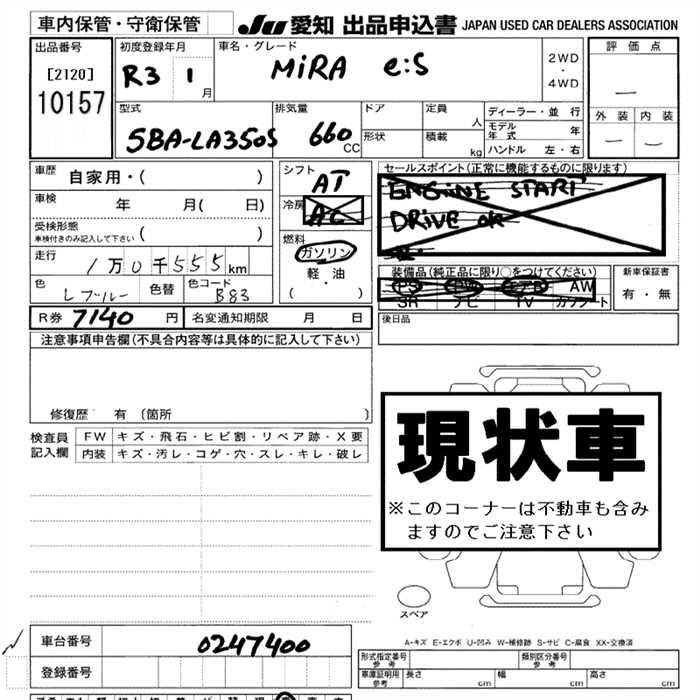 車内保管・守衛保管 JU 愛知 出品申込書 JAPAN USED CAR DEALERS ASSOCIATION
出品番号 初度登録年月 車名・グレード 2WD・4WD 評価点
[2120] R3 1月 MiRA e:S —
10157 外装 内装
型式 排気量 ドア 定員 人 ディーラー・並行
5BA-LA350S 660 CC 形状 積載 kg モデル年式 年
ハンドル 左・右 — —
車歴 自家用・( ) シフト AT セールスポイント(正常に機能するものに限ります)
車検 年 月( 日) 冷房 AC ENGiNE START
受検形態 車検付きのみ記入して下さい ( ) DRiVE OK
燃料 ガソリン
走行 1万0千555km 軽・油 装備品(純正品に限り○をつけてください) 新車保証書
色 Lブルー 色替 色コード B83 (・) PS PW エアB AW 有・無
SR ナビ TV カワシート
R券 7140 円 名変通知期限 月 日 後日品
注意事項申告欄(不具合内容等は具体的に記入して下さい)
修復歴 有(箇所 )
検査員記入欄 FW キズ・飛石・ヒビ割・リペア跡・X要
内装 キズ・汚レ・コゲ・穴・スレ・キレ・破レ
現状車
※このコーナーは不動車も含み
ますのでご注意下さい
スペア
A-キズ E-エクボ U-凹み W-補修跡 S-サビ C-腐食 XX-交換済
車台番号 0247400 形式指定番号 参考 類別区分番号 参考
登録番号 車庫証明用 参考 長さ cm 幅 cm 高さ cm